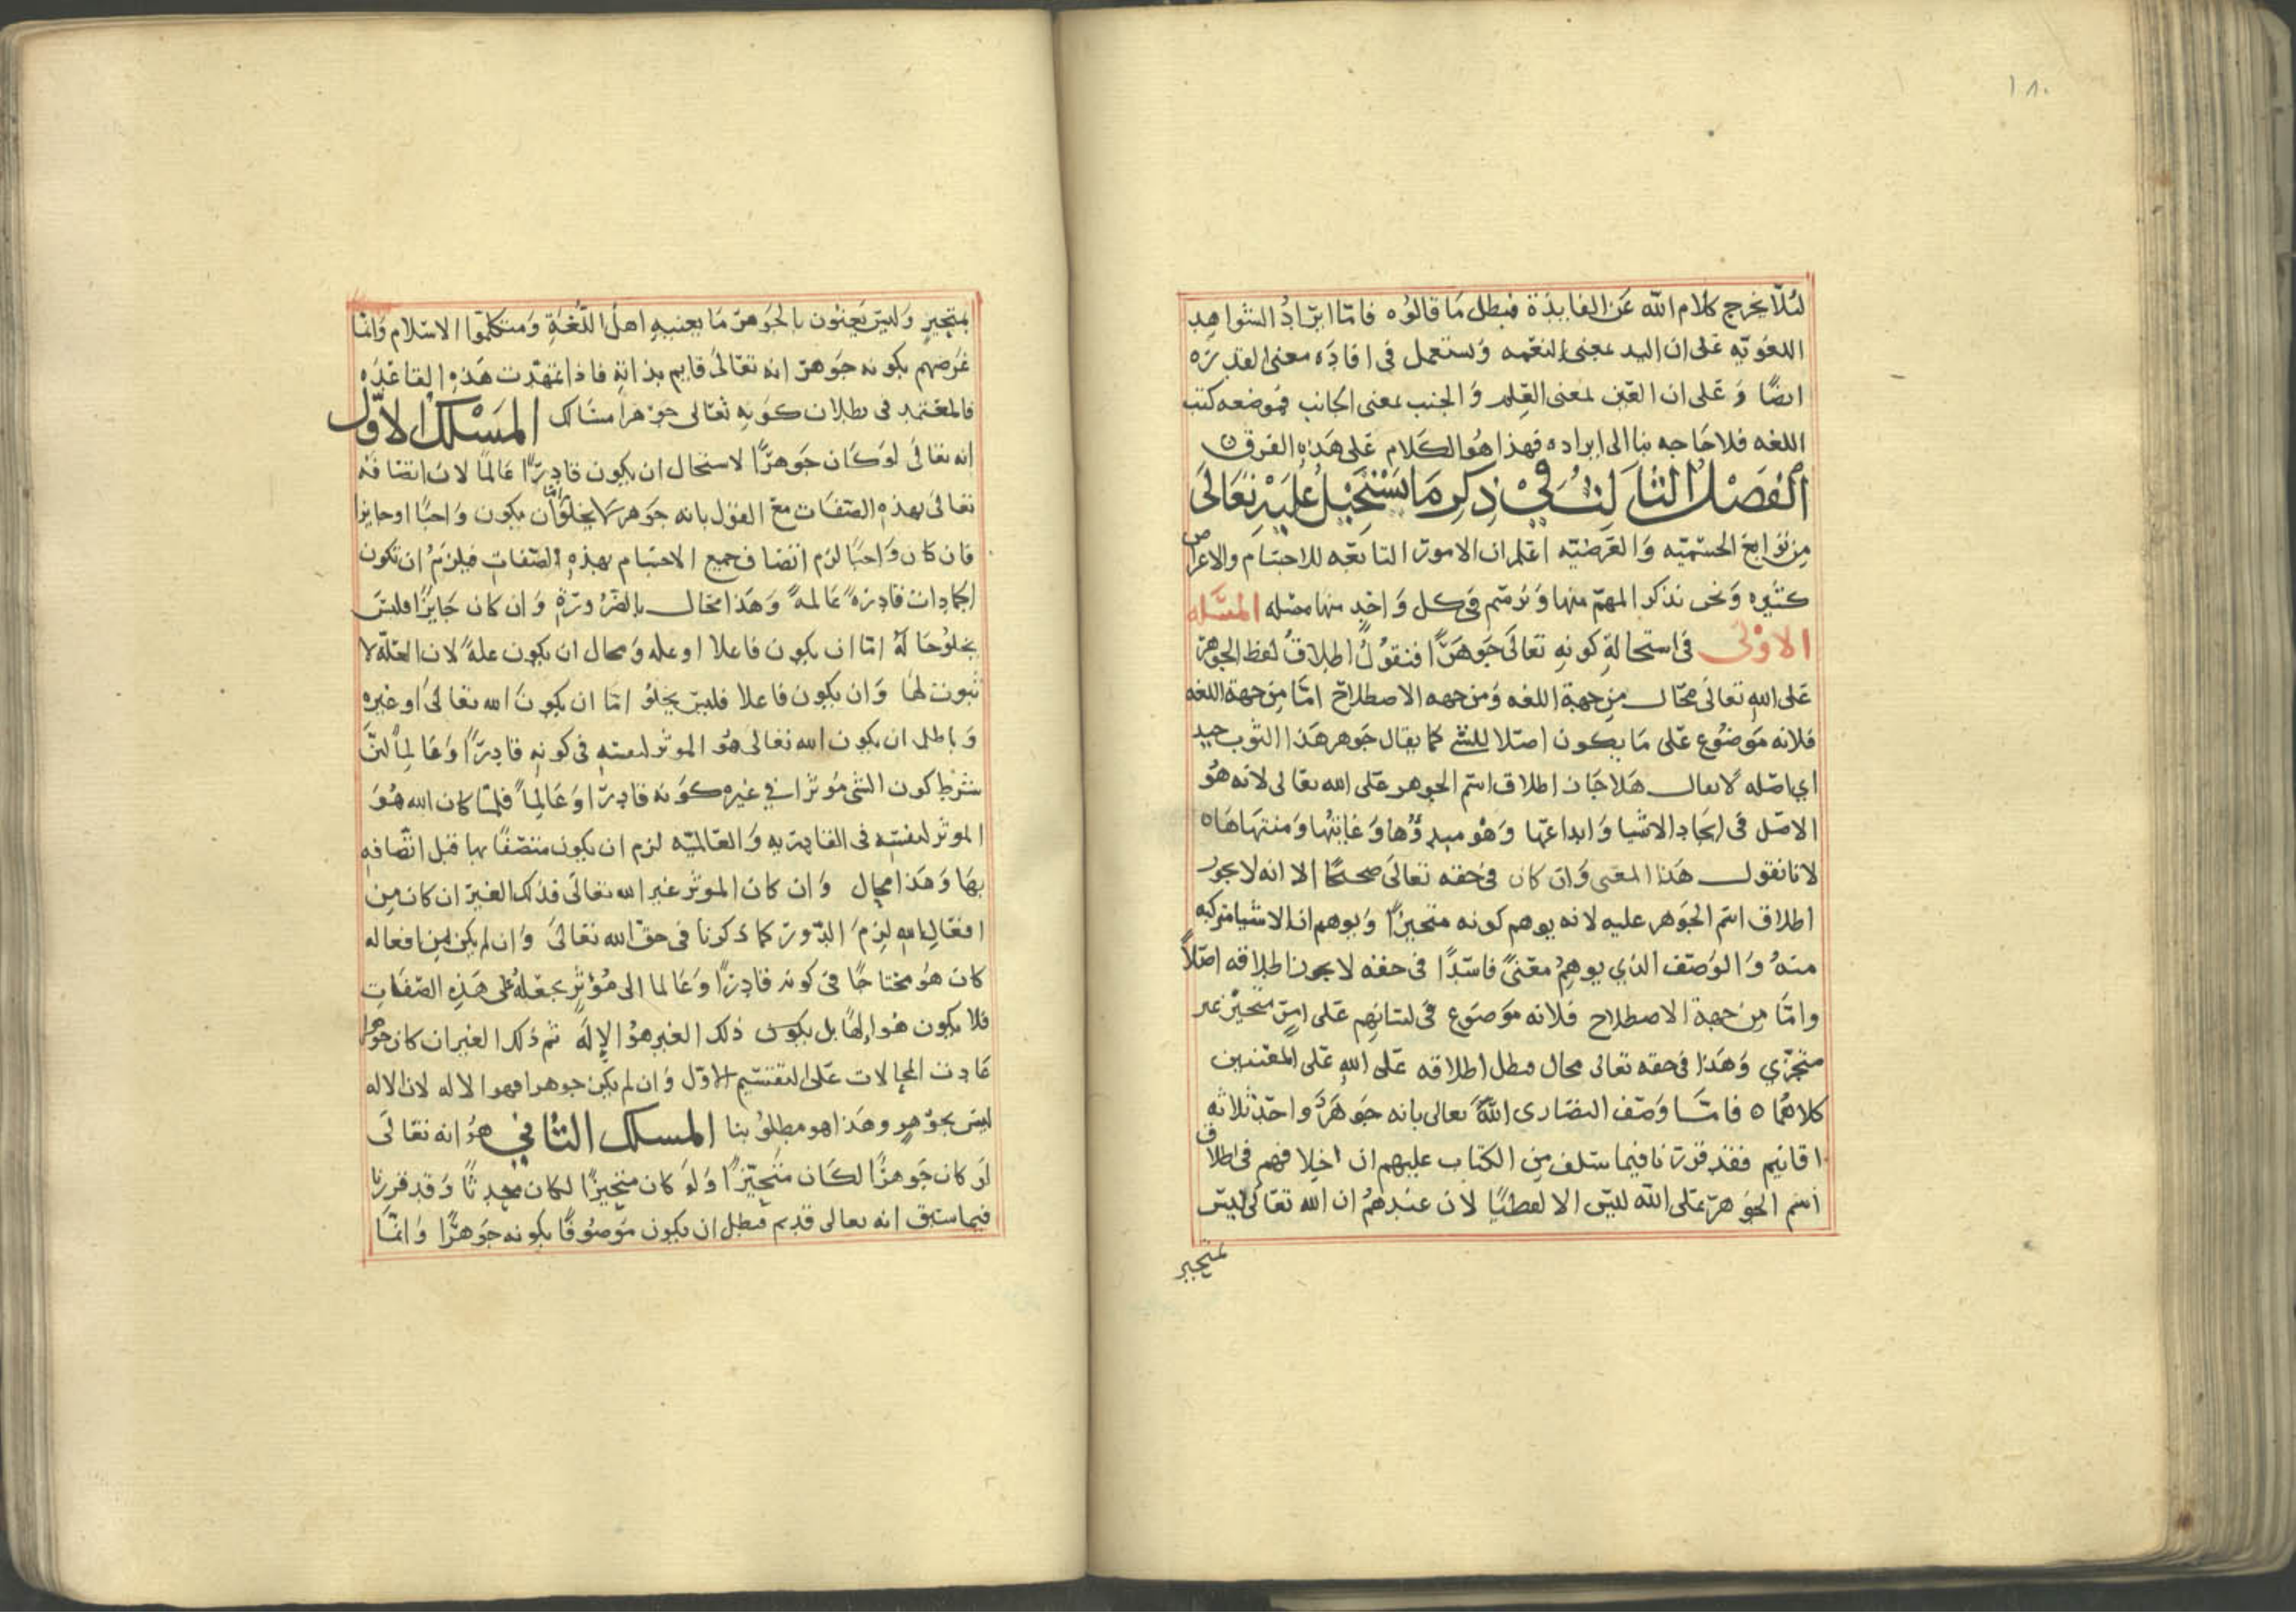 ١٨٠
لئلا يخرج كلام الله عن الفايدة فبطل ما قالوه فاما ايراد الشواهد
اللغويه على ان اليد بمعنى النعمه وتستعمل في افاده معنى القدره
ايضا وعلى ان العين بمعنى العلم والجنب بمعنى الجانب فموضعه كتب
اللغه فلا حاجه بنا الى ايراده فهذا هو الكلام على هذه الفرق
الفصل الثالث في ذكر ما يستحيل عليه تعالى
من توابع الجسميه والعرضيه اعلم ان الامور التابعه للاجسام والاعراض
كثيره ونحن نذكر المهم منها ونرسم في كل واحد منها مسله المسله
الاولى في استحالة كونه تعالى جوهرا فنقول اطلاق لفظ الجوهر
على الله تعالى محال من جهة اللغه ومن جهه الاصطلاح اما من جهة اللغه
فلانه موضوع على ما يكون اصلا للشي كما يقال جوهر هذا الثوب جيد
اي اصله لا يقال هلا جاز اطلاق اسم الجوهر على الله تعالى لانه هو
الاصل في ايجاد الاشيا وابداعها وهو مبدؤها وغايتها ومنتهاها ٥
لانا نقول هذا المعنى وان كان في حقه تعالى صحيحا الا انه لا يجوز
اطلاق اسم الجوهر عليه لانه يوهم كونه متحيزا ويوهم ان الاشيا متركبه
منه والوصف الذي يوهم معنى فاسدا في حقه لا يجوز اطلاقه اصلا
واما من جهة الاصطلاح فلانه موضوع في لسانهم على امر متحيز غير
متجزي وهذا في حقه تعالى محال فبطل اطلاقه على الله على المعنيين
كلاهما ٥ فاما وصف النصارى الله تعالى بانه جوهر واحد ثلاثه
اقانيم فقد قررنا فيما سلف من الكتاب عليهم ان خلافهم في اطلاق
اسم الجوهر على الله ليس الا لفظيا لان عندهم ان الله تعالى ليس
بمتحيز
بمتحيز وليس يعنون بالجوهر ما يعنيه اهل اللغة ومتكلموا الاسلام وانما
غرضهم بكونه جوهر انه تعالى قايم بذاته فاذا تمهدت هذه القاعده
فالمعتمد في بطلان كونه تعالى جوهرا مسالك المسلك الاول
انه تعالى لو كان جوهرا لاستحال ان يكون قادرا عالما لان اتصافه
تعالى بهذه الصفات مع القول بانه جوهر لا يخلوا اما ان يكون واجبا او جايزا
فان كان واجبا لزم اتصاف جميع الاجسام بهذه الصفات فيلزم ان تكون
الجمادات قادرة عالمة وهذا محال بالضرورة وان كان جايزا فليس
يخلو حاله اما ان يكون فاعلا او عله ومحال ان يكون علة لان العلة لا
ثبوت لها وان يكون فاعلا فليس يخلو اما ان يكون الله تعالى او غيره
وباطل ان يكون الله تعالى هو الموثر لنفسه في كونه قادرا وعالما لان
شرط كون الشي موثرا في غيره كونه قادرا وعالما فلما كان الله هو
الموثر لنفسه في القادريه والعالميه لزم ان يكون متصفا بها قبل اتصافه
بها وهذا محال وان كان الموثر غير الله تعالى فذلك الغير ان كان من
افعال الله لزم الدور كما ذكرنا في حق الله تعالى وان لم يكن من افعاله
كان هو محتاجا في كونه قادرا وعالما الى مؤثر يجعله على هذه الصفات
فلا يكون هو الها بل يكون ذلك الغير هو الإله ثم ذلك الغير ان كان جوهرا
عادت المحالات على التقسيم الاول وان لم يكن جوهرا فهو الاله لان الاله
ليس بجوهر وهذا هو مطلوبنا المسلك الثاني هو انه تعالى
لو كان جوهرا لكان متحيزا ولو كان متحيزا لكان محدثا وقد قررنا
فيما سبق انه تعالى قديم فبطل ان يكون موصوفا بكونه جوهرا وانما